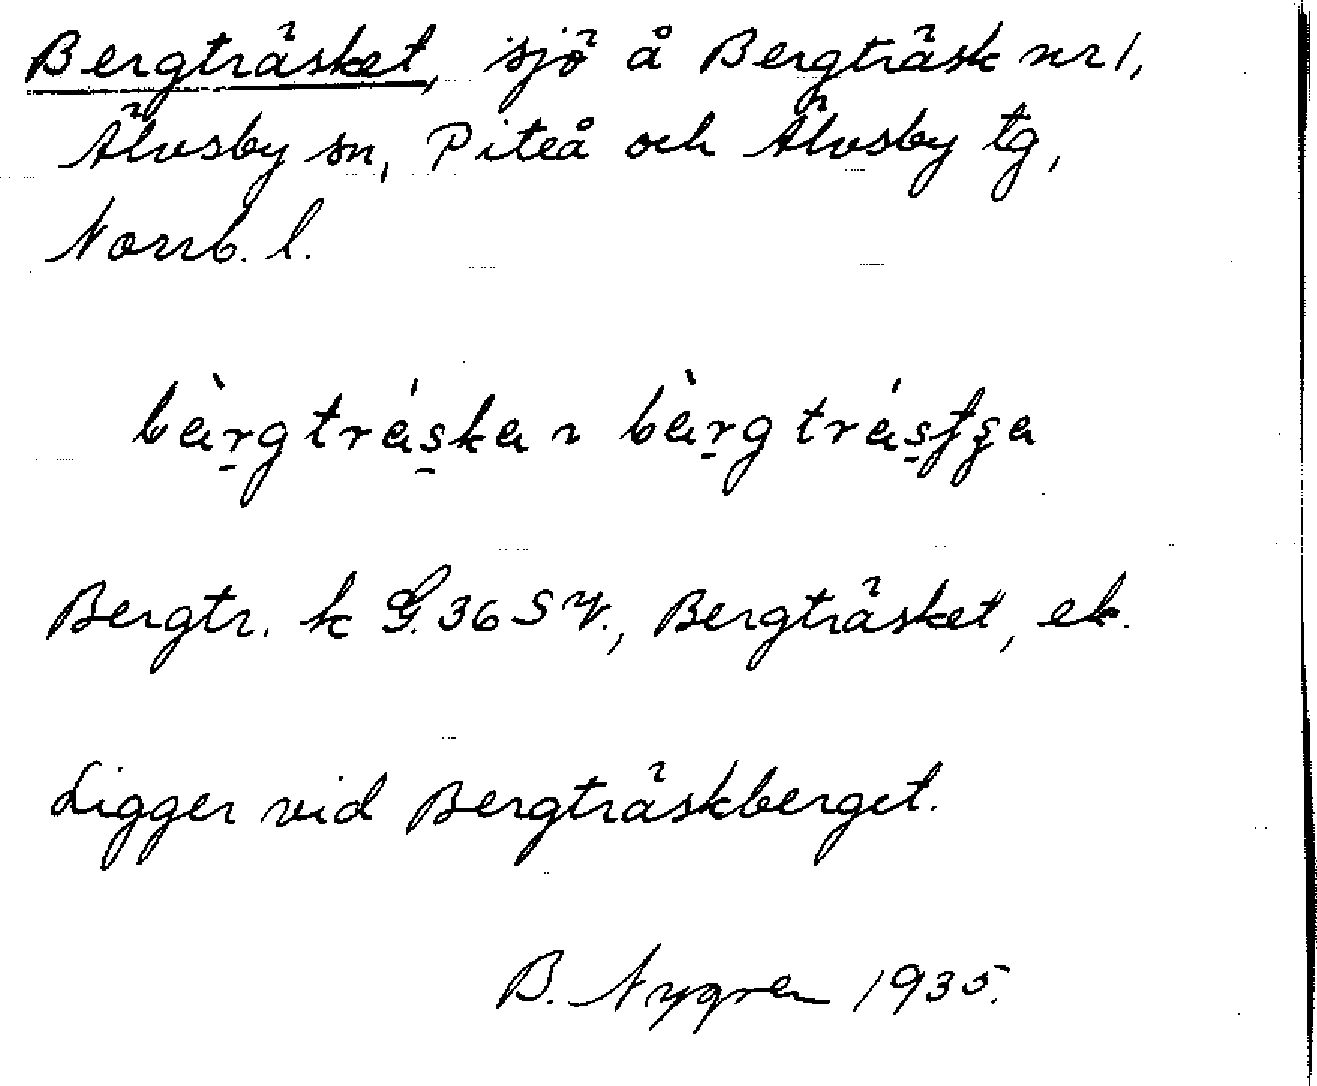 Bergträsket, sjö å Bergträsk nr 1,
Älvsby sn, Piteå och Älvsby tg,
Norrb. l.
bàrgtráska ~ bàrgtrásʃʂa
Bergtr. k G. 36 SV., Bergträsket, ek.
Ligger vid Bergträskberget.
B. Nygren 1935.